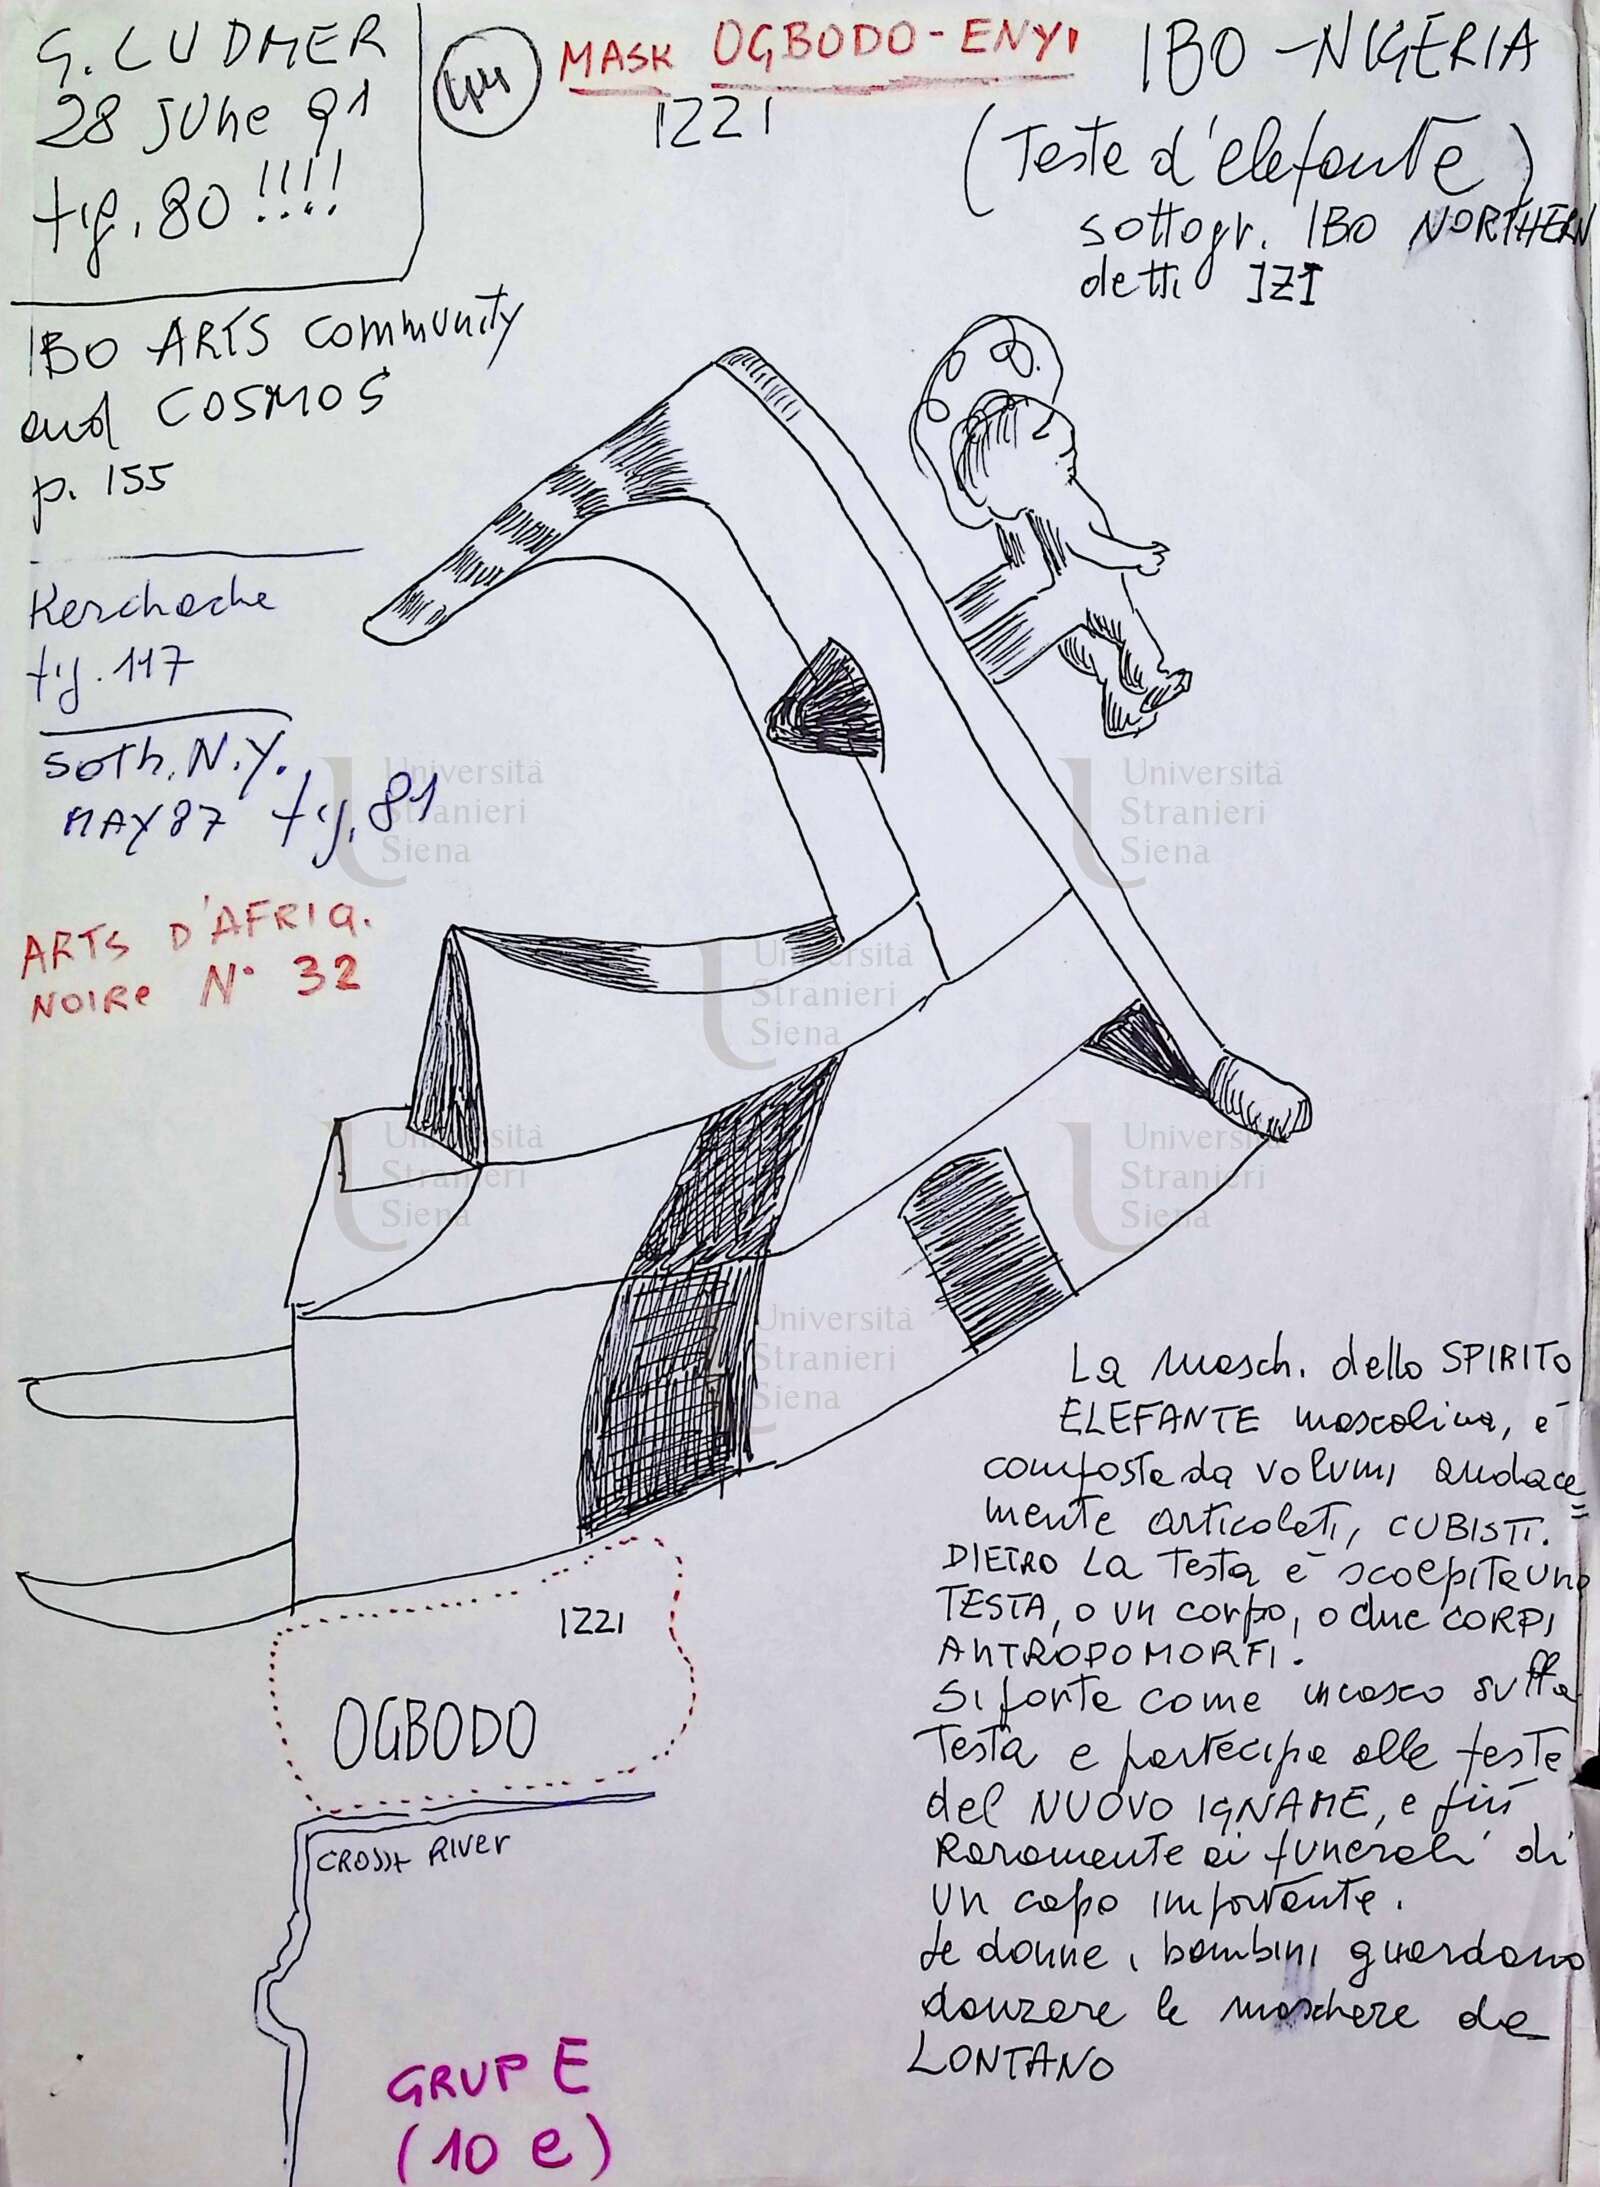 G. LUDMER
28 JUNe 91
fig. 80 !!!!
MASK OGBODO-ENYI
IZZI
IBO - NIGERIA
(Testa d'elefante)
sottogr. IBO NORTHERN
detti IZI
IBO ARTS community
and COSMOS
p. 155
Kerchache
fig. 117
Soth. N.Y.
MAY 87 fig. 81
ARTS D'AFRIQ.
NOIRe N° 32
Università
Stranieri
Siena
Università
Stranieri
Siena
Università
Stranieri
Siena
Università
Stranieri
Siena
Università
Stranieri
Siena
Università
Stranieri
Siena
La masch. dello SPIRITO
ELEFANTE mascolina, è
composta da volumi audace=
mente articolati, CUBISTI.
DIETRO LA Testa è scolpita una
TESTA, o un corpo, o due CORPI
ANTROPOMORFI.
Si porta come un casco sulla
Testa e partecipa alle feste
del NUOVO IGNAME, e più
Raramente ai funerali di
un capo importante.
Le donne, i bambini guardano
danzare le maschere da
LONTANO
IZZI
OGBODO
CROSS RIVER
GRUP E
(10 e)